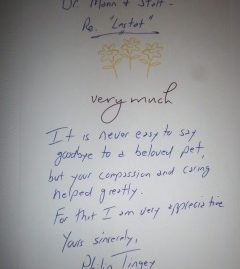 Dr. Mann & Staff -
Re. "Lestat"
very much
It is never easy to say
goodbye to a beloved pet,
but your compassion and caring
helped greatly.
For that I am very appreciative
Yours sincerely,
Tingey